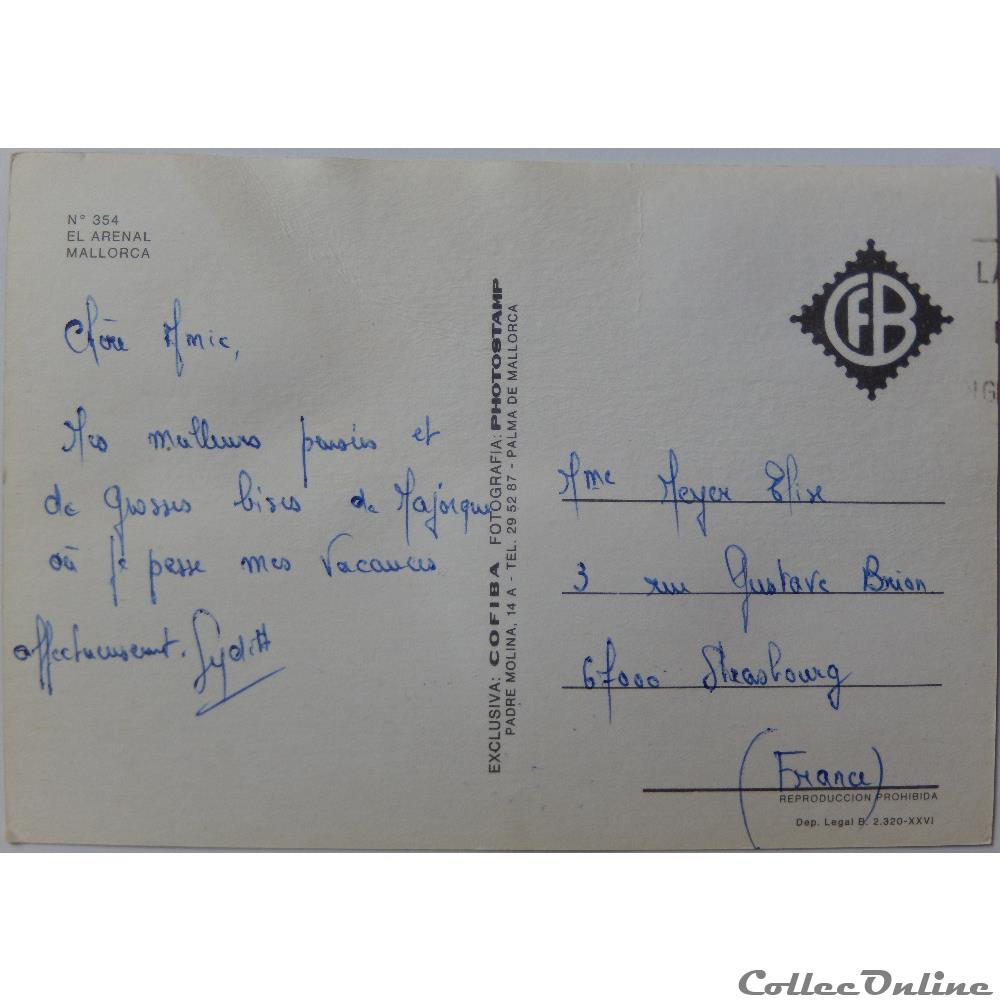 N° 354
EL ARENAL
MALLORCA
Chère Amie,
Mes meilleurs pensées et
de Grosses bises de Majorque
où je passe mes vacances
affectueusement.
EXCLUSIVA: COFIBA FOTOGRAFIA: PHOTOSTAMP
PADRE MOLINA, 14 A - TEL. 29 52 87 - PALMA DE MALLORCA
CFB
LA
Mme Meyer Elise
3 rue Gustave Brion
67000 Strasbourg
(France)
REPRODUCCION PROHIBIDA
Dep. Legal B. 2.320-XXVI
CollecOnline